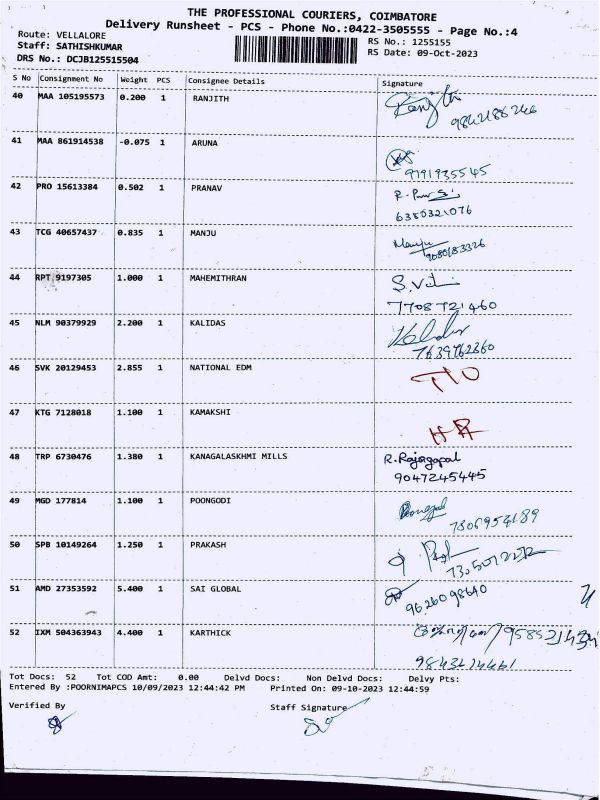 THE PROFESSIONAL COURIERS, COIMBATORE
Delivery Runsheet - PCS - Phone No.:0422-3505555 - Page No.:4
Route: VELLALORE
Staff: SATHISHKUMAR
DRS No.: DCJB125515504
RS No.: 1255155
RS Date: 09-Oct-2023
S No Consignment No Weight PCS Consignee Details Signature
40 MAA 105195573 0.200 1 RANJITH
9842186246
41 MAA 861914538 -0.075 1 ARUNA
9191935545
42 PRO 15613384 0.502 1 PRANAV
6380321076
43 TCG 40657437 0.835 1 MANJU Manju
9080183326
44 RPT 9197305 1.000 1 MAHEMITHRAN
7708721460
45 NLM 90379929 2.200 1 KALIDAS
7639762360
46 SVK 20129453 2.855 1 NATIONAL EDM
47 KTG 7128018 1.100 1 KAMAKSHI
48 TRP 6730476 1.380 1 KANAGALASKHMI MILLS R.Rajagopal
9047245445
49 MGD 177814 1.100 1 POONGODI
7306954189
50 SPB 10149264 1.250 1 PRAKASH
51 AMD 27353592 5.400 1 SAI GLOBAL
9626098640
52 IXM 504363943 4.400 1 KARTHICK
Tot Docs: 52 Tot COD Amt: 0.00 Delvd Docs: Non Delvd Docs: Delvy Pts:
Entered By :POORNIMAPCS 10/09/2023 12:44:42 PM Printed On: 09-10-2023 12:44:59
Verified By Staff Signature